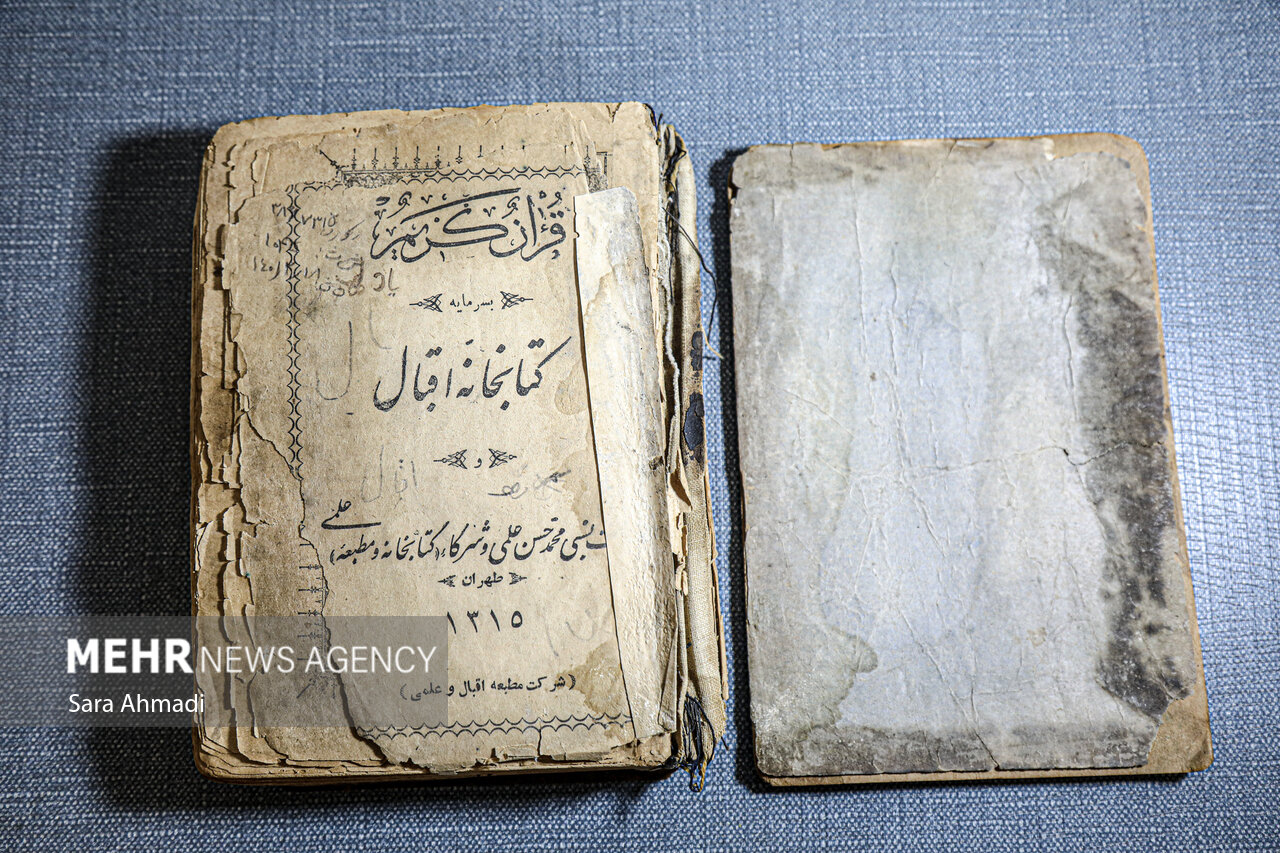 قرآن کریم
بسرمایه
کتابخانهٔ اقبال
و
اقبال
علمی
محمد حسن علمی و شرکاء (کتابخانه و مطبعه)
طهران
۱۳۱۵
(شرکت مطبعه اقبال و علمی)
MEHR NEWS AGENCY
Sara Ahmadi